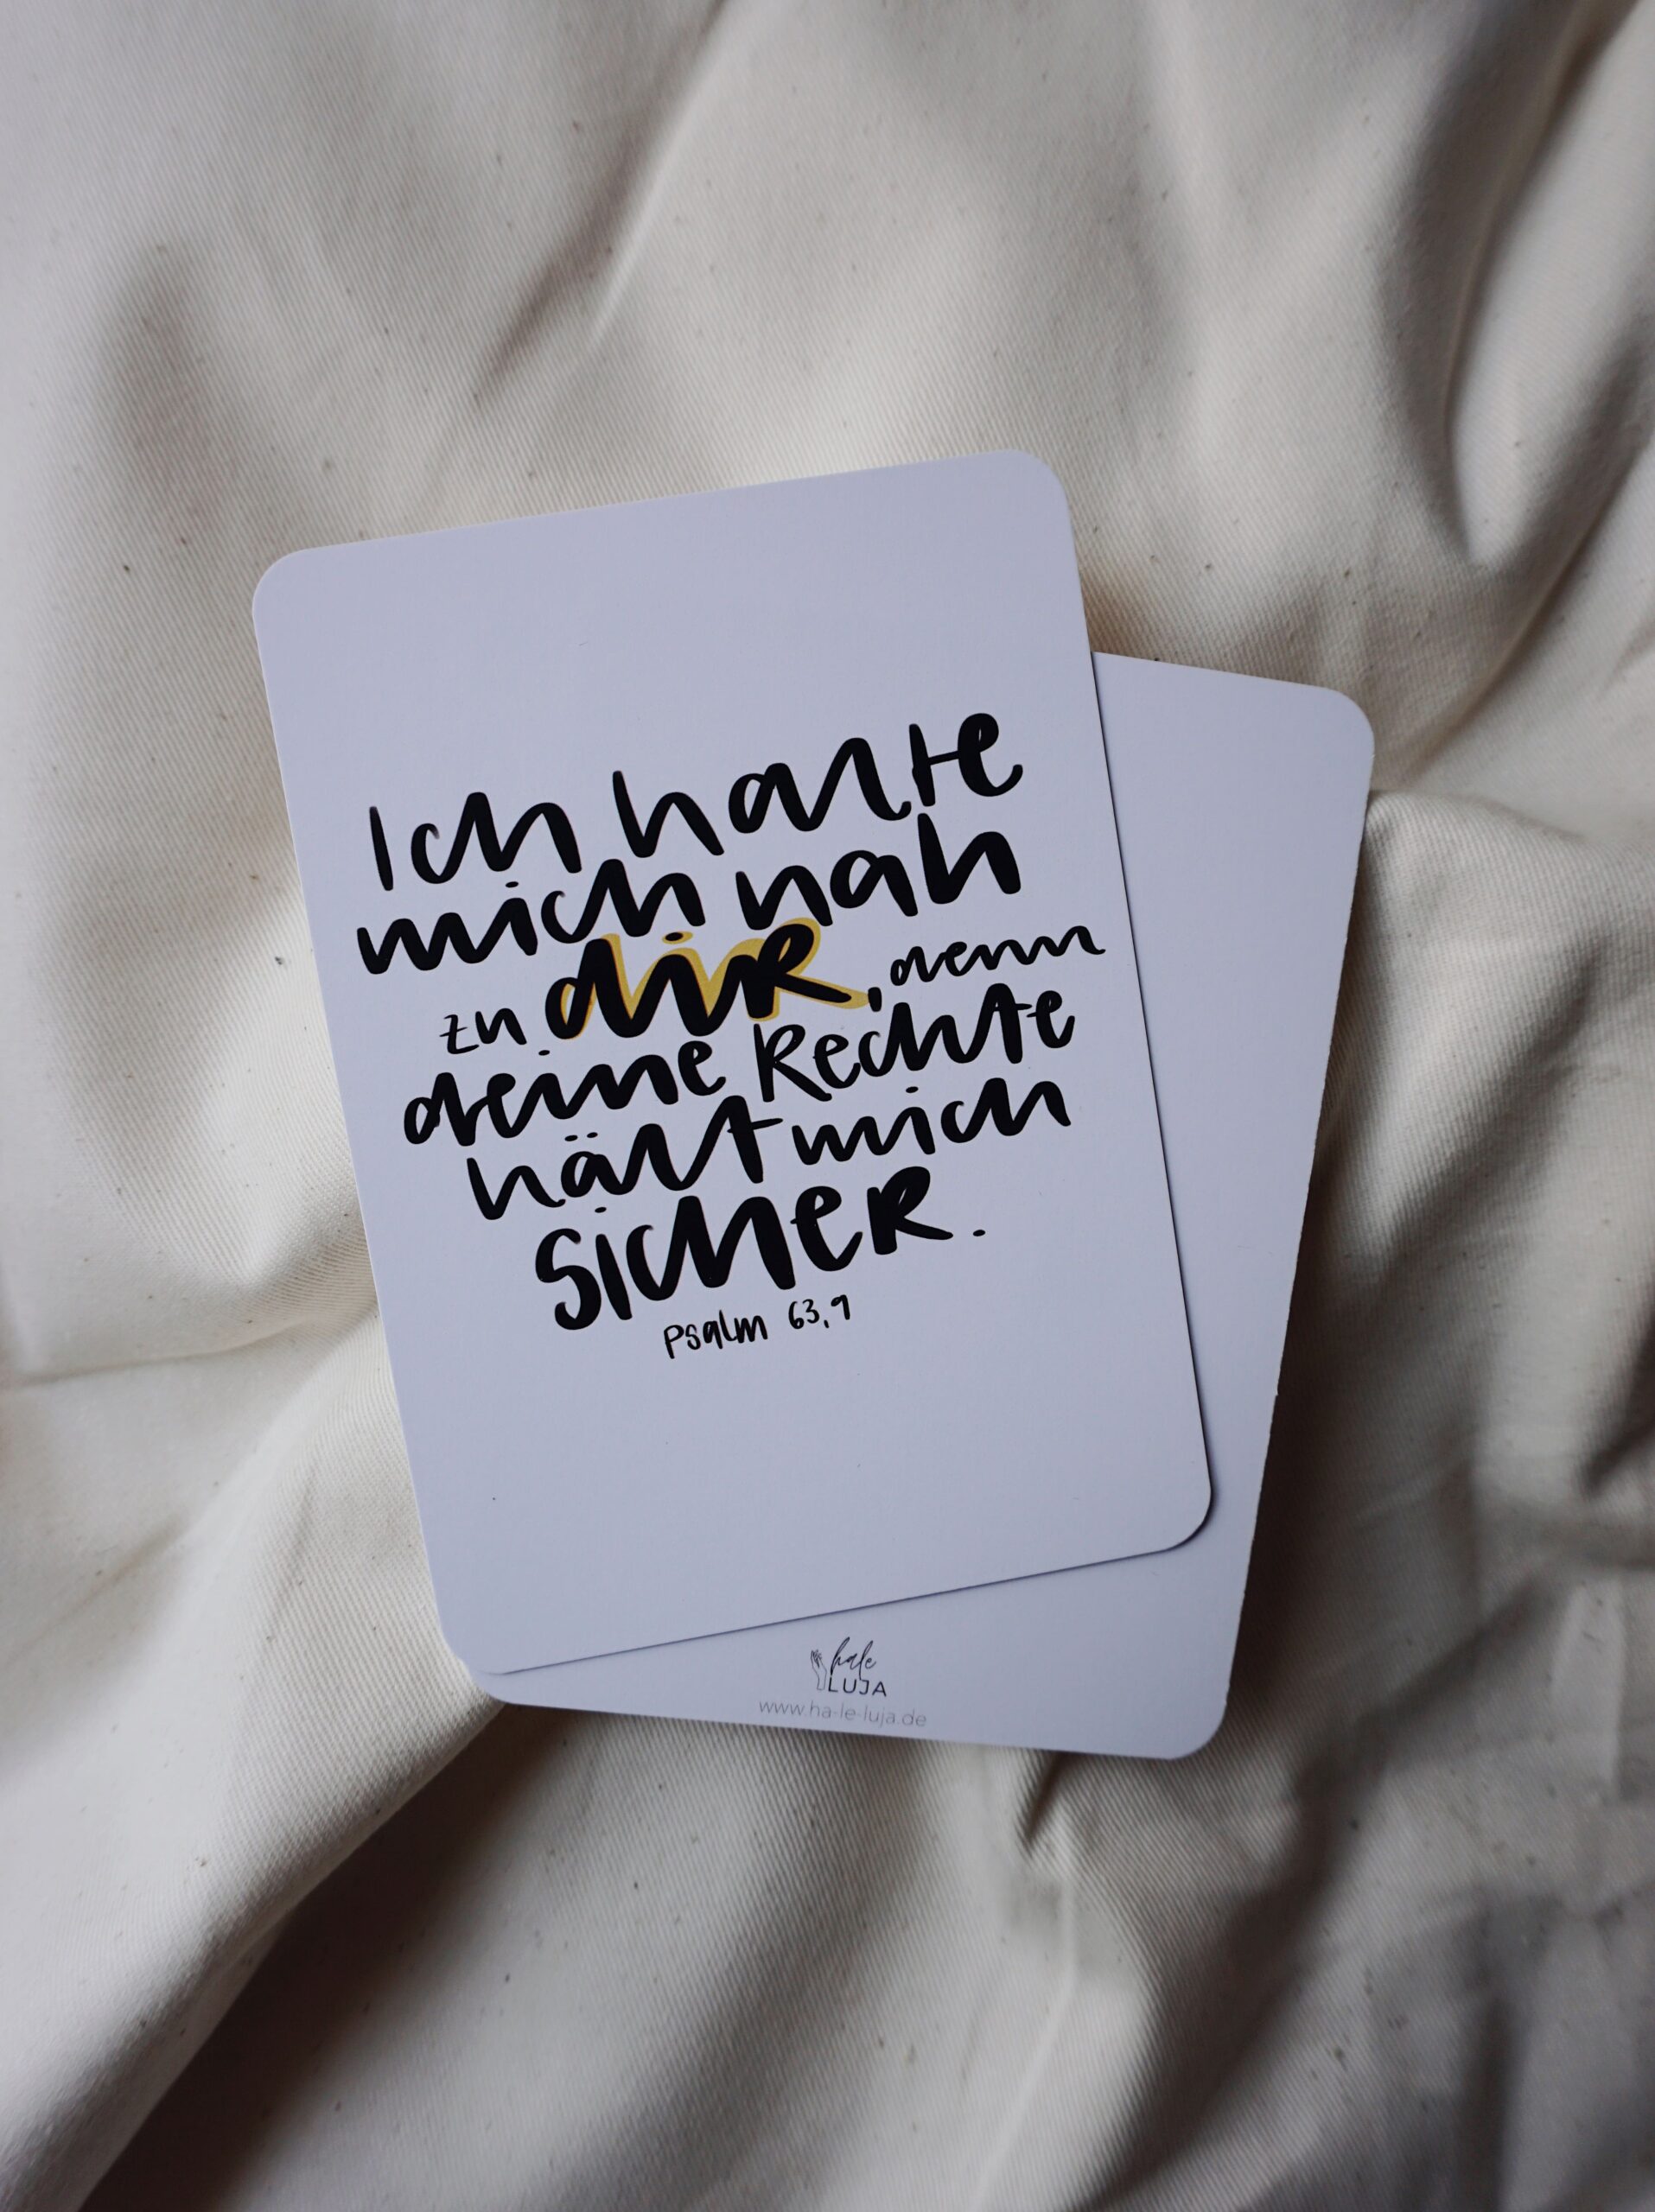 Ich halte
mich nah
zu dir, denn
deine Rechte
hält mich
SICHER.
Psalm 63,9
hale
LUJA
www.ha-le-luja.de